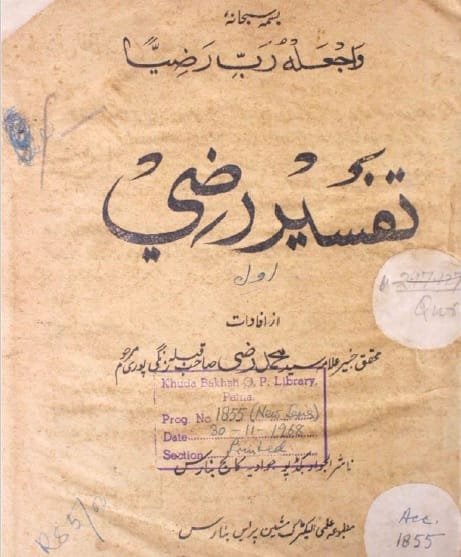 بسمہ سبحانہٗ
وَاجْعَلْهُ رَبِّ رَضِيًّا
تفسیر رضی
اول
از افادات
محقق خبیر علامہ سید محمد رضی صاحب قبلہ زنگی پوری مرحوم
Khuda Bakhsh O. P. Library,
Patna.
Prog. No. 1855 (New Series)
Date 30-11-1968
Section Printed
ناشر بکڈپو جوادیہ کالج بنارس
مطبوعہ علمی الیکٹرک مشین پریس بنارس
Acc.
1855